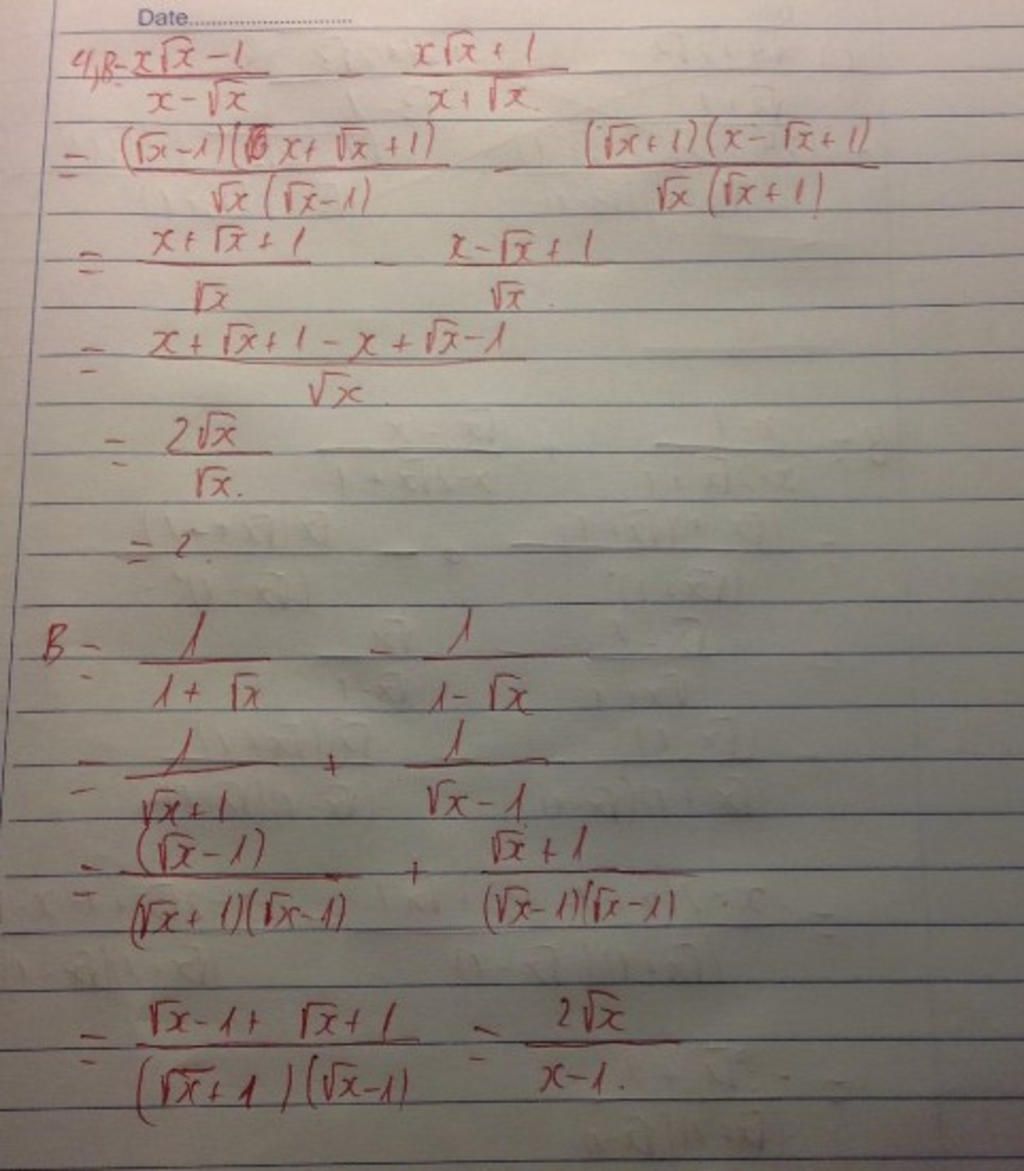 Date..............................
4, B = x√x - 1 / x - √x - x√x + 1 / x + √x
= (√x - 1)(x + √x + 1) / √x (√x - 1) - (√x + 1)(x - √x + 1) / √x (√x + 1)
= x + √x + 1 / √x - x - √x + 1 / √x.
= x + √x + 1 - x + √x - 1 / √x
= 2√x / √x.
= 2.
B = 1 / 1 + √x - 1 / 1 - √x
= 1 / √x + 1 + 1 / √x - 1
= (√x - 1) / (√x + 1)(√x - 1) + √x + 1 / (√x - 1)(√x - 1)
= √x - 1 + √x + 1 / (√x + 1)(√x - 1) = 2√x / x - 1.